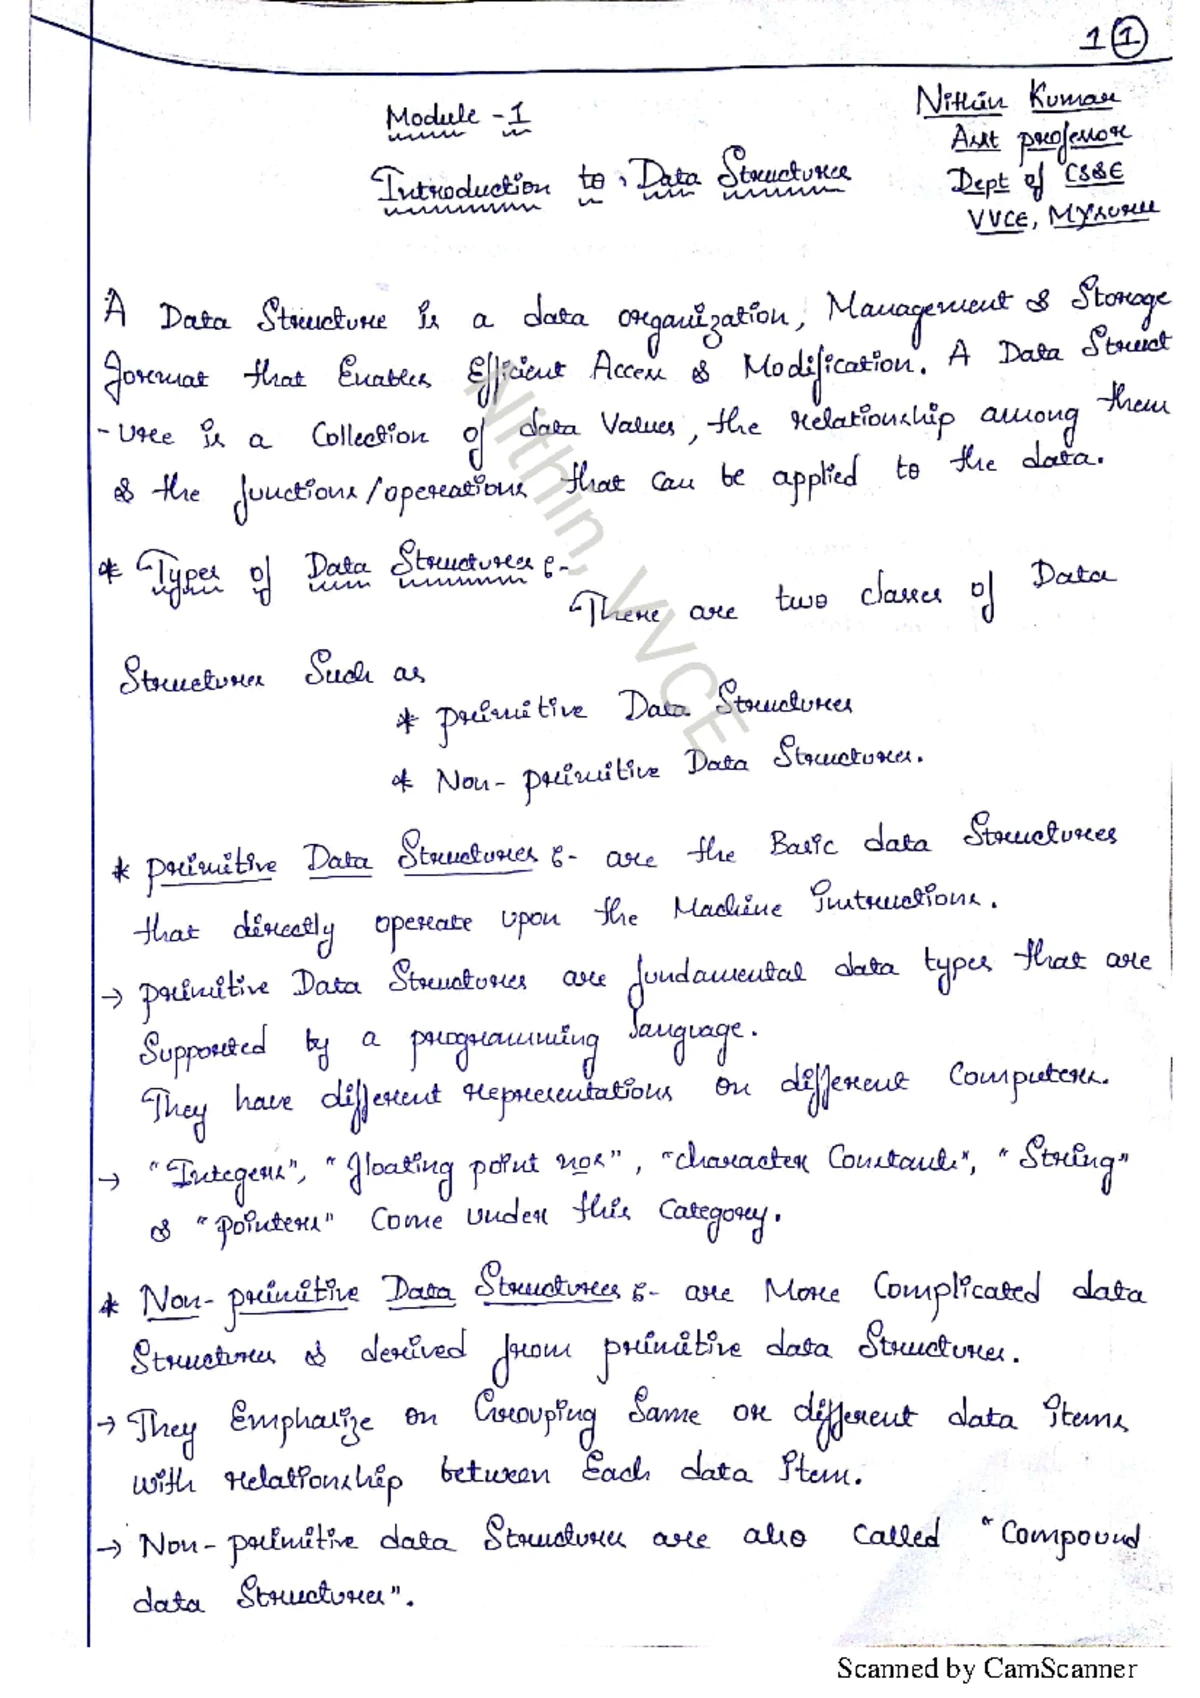 1 1
Module - 1
Introduction to Data Structures
Nithin Kumar
Asst professor
Dept of CS&E
VVCE, Mysuru
A Data Structure is a data organization, Management & Storage
format that Enables Efficient Access & Modification. A Data Struct
- ure is a Collection of data Values, the relationship among them
& the functions/operations that can be applied to the data.
* Types of Data Structures :-
There are two classes of Data
Structures Such as
* primitive Data Structures
* Non - primitive Data Structures.
* primitive Data Structures :- are the Basic data Structures
that directly operate upon the Machine Instructions.
→ primitive Data Structures are fundamental data types that are
Supported by a programming language.
They have different representations on different Computers.
→ "Integers", "floating point nos", "character Constants", "String"
& "pointers" Come under this Category.
* Non - primitive Data Structures :- are More Complicated data
Structures & derived from primitive data Structures.
→ They Emphasize on Grouping Same or different data items
with relationship between Each data Item.
→ Non - primitive data Structures are also Called "Compound
data Structures".
Nithin, VVCE
Scanned by CamScanner